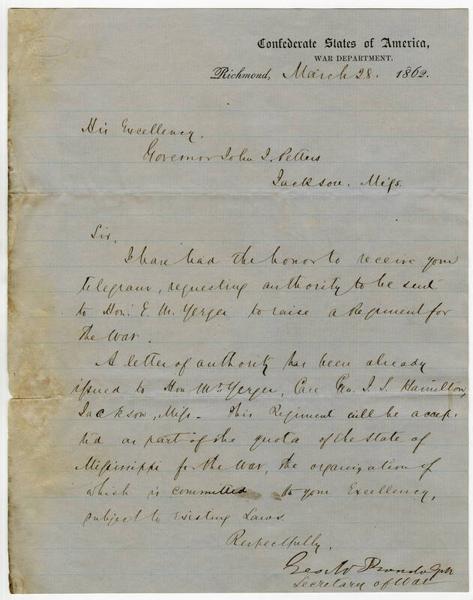 Confederate States of America,
WAR DEPARTMENT.
Richmond, March 28. 1862.
His Excellency.
Governor John J. Pettus
Jackson. Miſs.
Sir,
I have had the honor to receive your
telegram, requesting authority to be sent
to Hon: E. M. Yerger to raise a Regiment for
the war.
A letter of authority has been already
issued to Hon Wm Yerger, Care J. S. Hamilton,
Jackson, Miſs. This Regiment will be accep-
ted as part of the quota of the state of
Miſsiſsippi for the war, the organization of
which is committed to your Excellency,
subject to existing Laws
Respectfully,
Geo. W Randolph
Secretary of War